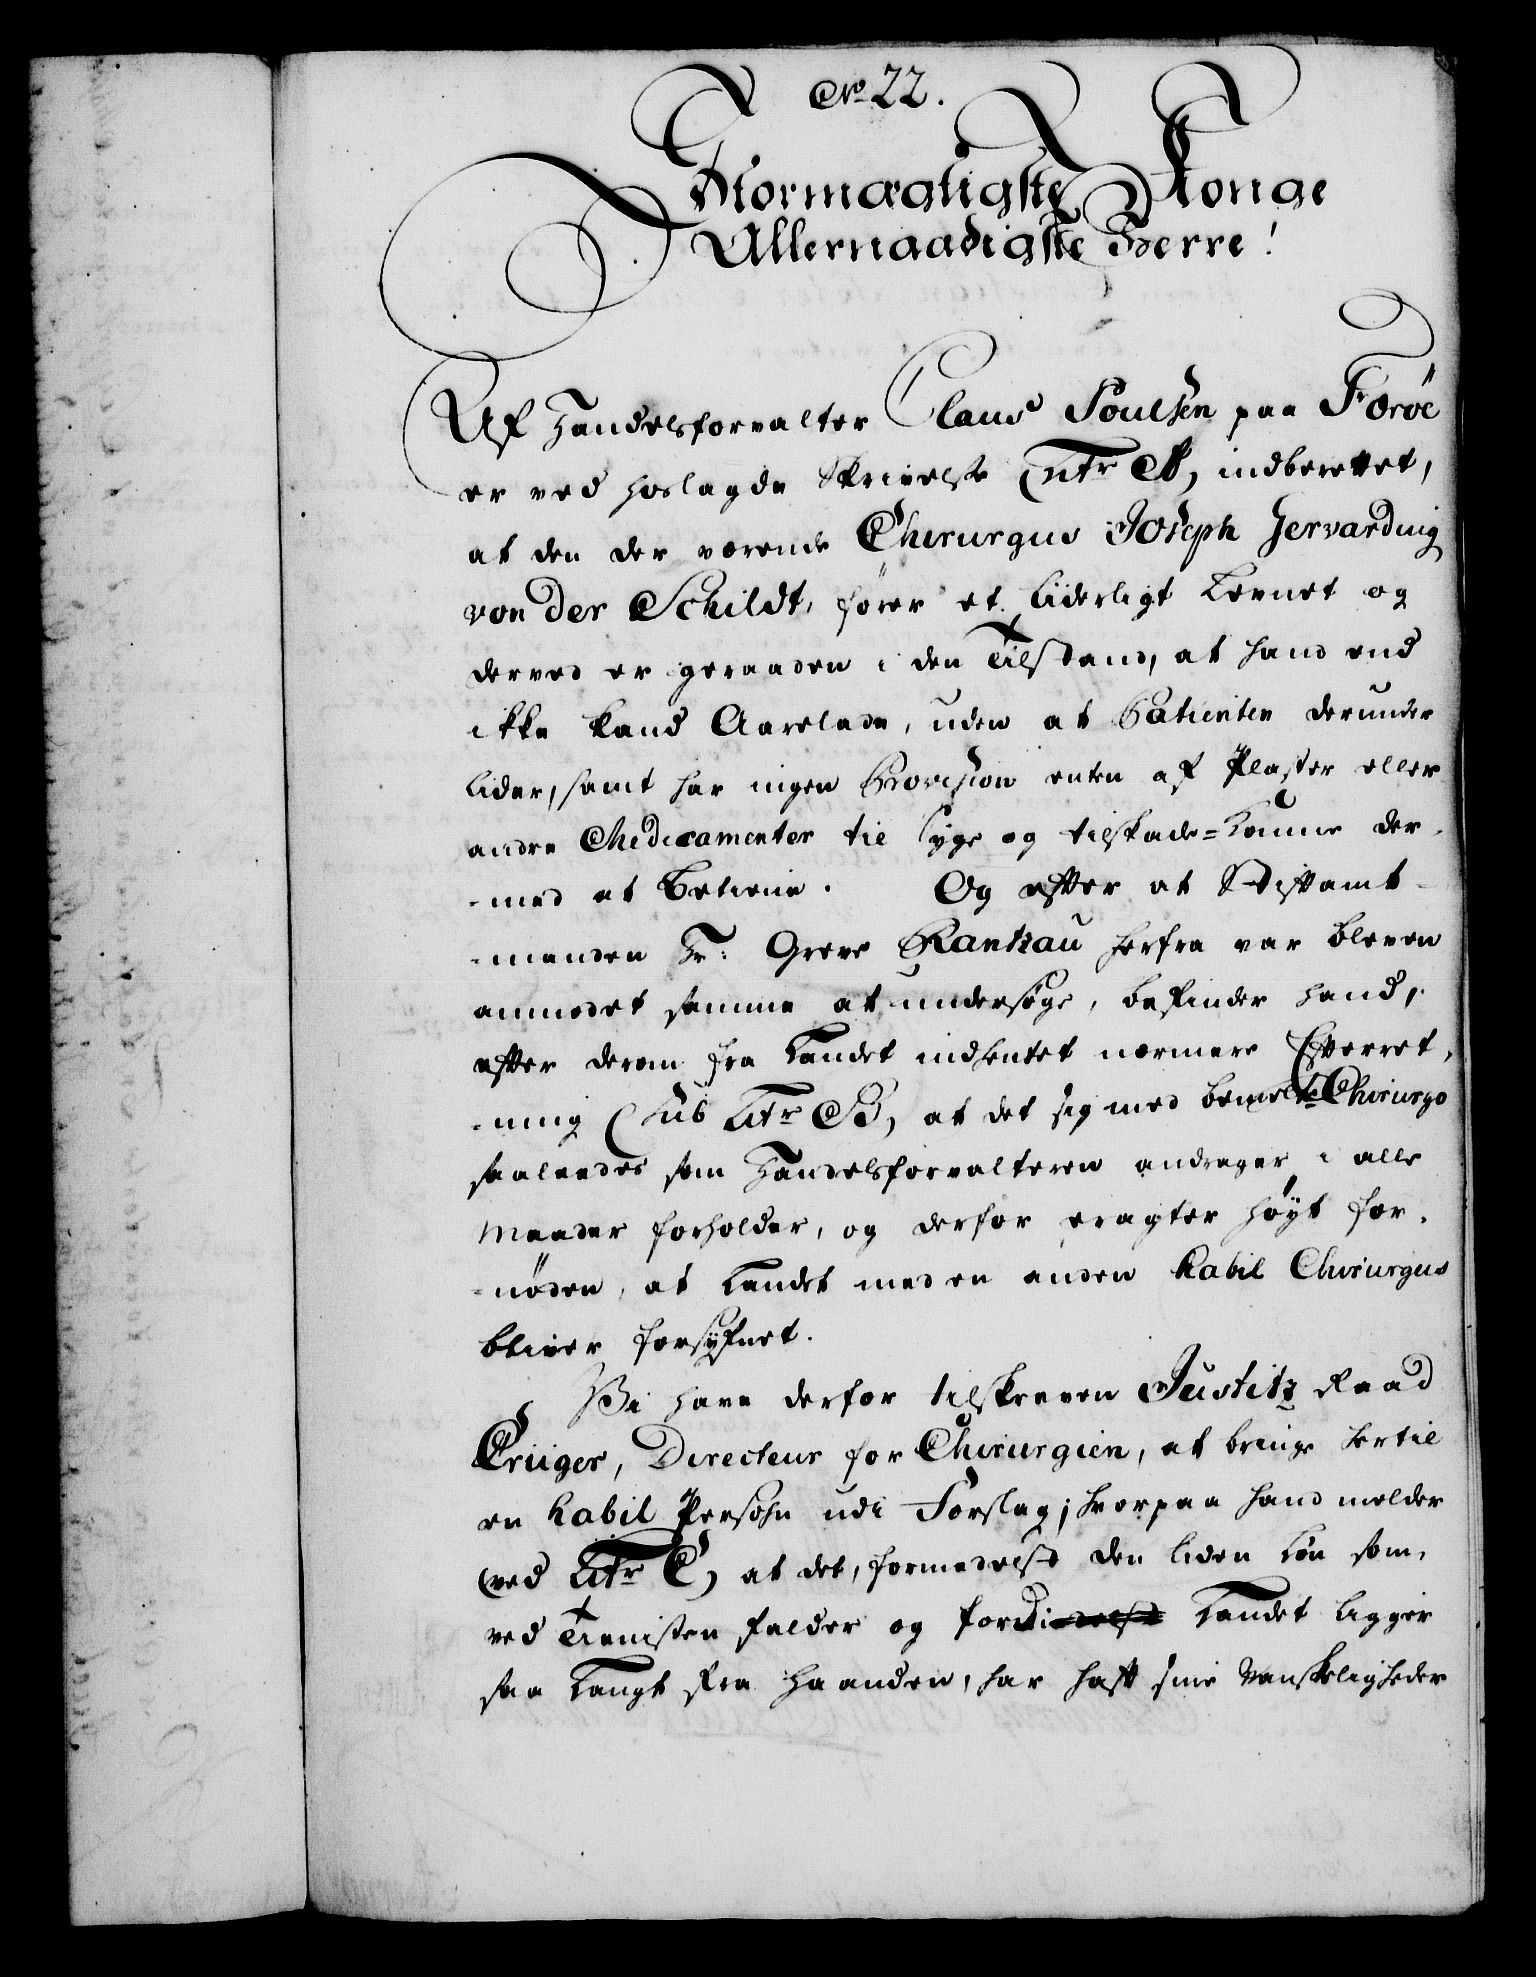 No 22.
Stormægtigste Konge
Allernaadigste Herre!
Af Handelsforvalter Claus Poulsen paa Foröe
er ved hoslagde Skrivelse (Litr A) indberettet,
at den der værende Chirurgus Joseph Gervarding
von der Schildt, fører et liiderligt Levnet og
derved er geraaden i den Tilstand, at hand end
ikke kand Aarelade, uden at Patienten derunder
lider, samt har ingen Provision enten af Plaster eller
andre Medicamenter til Syge og tilskade=komne der-
-med at betiene. Og efter at Stiftamt-
-manden Hr: Greve Rantzau herfra var bleven
anmodet samme at undersøge, befinder hand,
efter derom fra Landet indhentet nærmere Efterret-
-ning (sub Litr B) at det sig med bemelte Chirurgo
saaledes som Handelsforvalteren andrager i alle
Maader forholder, og derfor eragter høyt for-
-nöden, at Landet med en anden habil Chirurgus
bliver forsyfnet.
Vi have derfor tilskreven Justitz Raad
Crüger, Directeur for Chirurgien, at bringe hertil
en habil Persohn udi Forslag; hvorpaa hand melder
(ved Litr C) at det, formedelst den liden Løn som
ved Tienisten falder og fordi Landet ligger
saa Langt fra Haanden, har haft sine Vanskeligheder